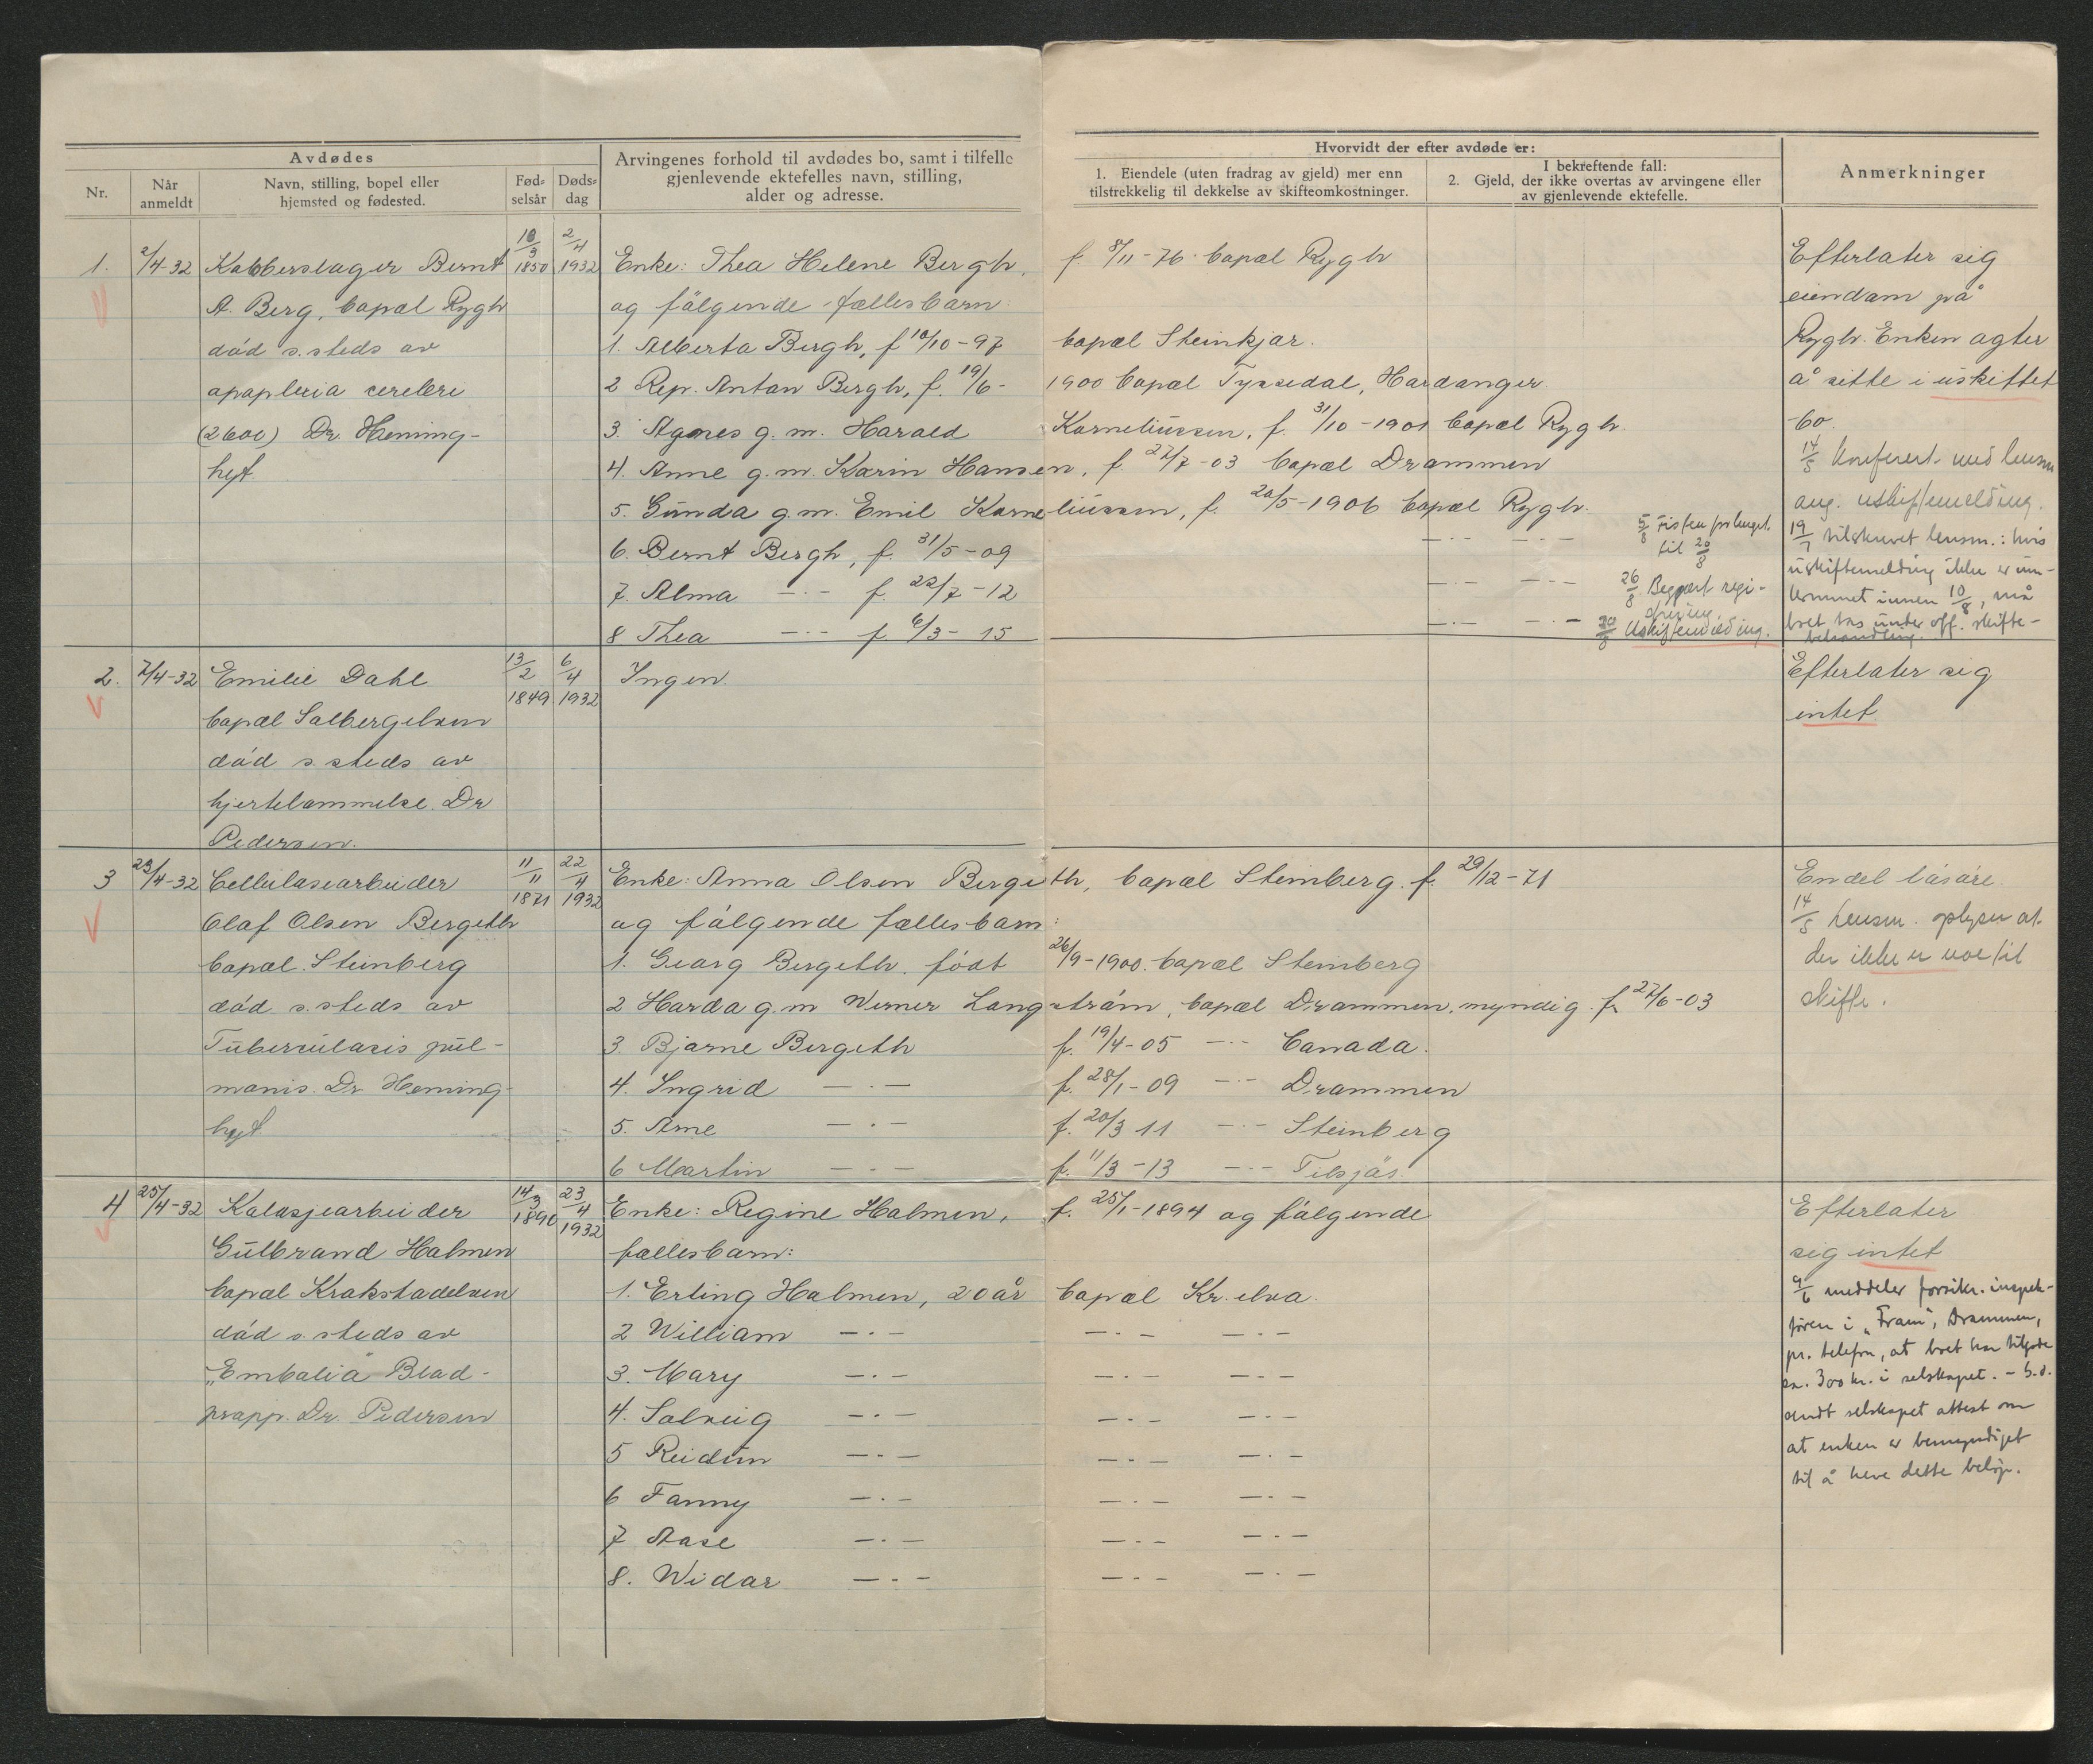 Avdødes
Nr.
Når anmeldt
Navn, stilling, bopel eller
hjemsted og fødested.
Fød-
selsår
Døds-
dag
Arvingenes forhold til avdødes bo, samt i tilfelle
gjenlevende ektefelles navn, stilling,
alder og adresse.
Hvorvidt der efter avdøde er:
1. Eiendele (uten fradrag av gjeld) mer enn
tilstrekkelig til dekkelse av skifteomkostninger.
I bekreftende fall:
2. Gjeld, der ikke overtas av arvingene eller
av gjenlevende ektefelle.
Anmerkninger
1. 2/4-32 Kobberslager Bernt
A. Berg, bopæl Rygh
død s. steds av
apoplexia cerebri
Dr. Heming-
hyt.
10/3 1850
2/4 1932
Enke: Thea Helene Bergh, f. 8/11-76. bopæl Rygh
og følgende fællesbarn:
1. Alberta Bergh, f 10/10-97 bopæl Steinkjær.
2 Rep. Anton Bergh, f. 19/6-1900 bopæl Tyssedal, Hardanger.
3. Agnes g. m. Harald Korneliussen, f. 31/10-1901 bopæl Rygh.
4. Anne g. m. Karin Hansen, f 27/7-03 bopæl Drammen
5. Gunda g. m. Emil Korneliussen, f. 20/5-1906 bopæl Rygh.
6. Bernt Bergh, f. 31/5-09 —·— —·—
7. Alma —·— f. 22/7-12 —·— —·—
8 Thea —·— f. 6/3-15 —·— —·—
5/8 Fristen forlenget
til 20/8
26/8 Begjært regi-
strering.
Uskiftemelding.
Efterlater sig
eiendom på
Rygh. Enken agter
å sitte i uskiftet
bo.
14/5 Konferert med lensm
ang. uskiftemelding.
19/7 tilskrevet lensm.: hvis
uskiftemelding ikke er inn-
kommet innen 10/8, må
boet tas under off. skifte-
behandling.
2. 7/4-32 Emilie Dahl
bopæl Solbergelven
død s. steds av
hjertelammelse. Dr
Pedersen.
13/2 1849
6/4 1932
Ingen.
Efterlater sig
intet
3 23/4-32 Cellulosearbeider
Olaf Olsen Bergeth
bopæl. Steinberg
død s. steds av
Tuberculosis pul-
monis. Dr. Heming-
hyt
11/11 1871
22/4 1932
Enke: Anna Olsen Bergeth, bopæl Steinberg. f. 29/12-71
og følgende fællesbarn:
1. Georg Bergeth. født 26/9-1900. bopæl Steinberg
2 Harda g. m Werner Langstrøm, bopæl Drammen, myndig. f. 27/6-03
3. Bjarne Bergeth f. 19/4-05 —·— Canada.
4. Ingrid —·— f. 28/1-09 —·— Drammen
5. Arne —·— f. 20/3 11 —·— Steinberg
6 Martin —·— f. 11/3-13 —·—
Endel løsøre.
14/5 Lensm. oplyser at
der ikke er noe til
skifte.
4 25/4-32 Kolosjearbeider
Gulbrand Holmen
bopæl Krokstadelven
død s. steds av
"Embolia" Blod-
propp. Dr. Pedersen
14/3 1890
23/4 1932
Enke: Regine Holmen, f. 25/1-1894 og følgende
fællesbarn:
1. Erling Holmen, 20 år bopæl Kr. elva.
2 William —·— —·— —·—
3. Mary —·— —·— —·—
4. Solveig —·— —·— —·—
5 Reidun —·— —·— —·—
6 Fanny —·— —·— —·—
7 Aase —·— —·— —·—
8. Widar —·— —·— —·—
Efterlater
sig intet
9/6 meddeler forsikr. inspek-
tøren i "Fram", Drammen,
pr. telefon, at boet har tilgode
ca. 300 kr. i selskapet. - S. d.
sendt selskapet attest om
at enken er bemyndiget
til å heve dette beløp.